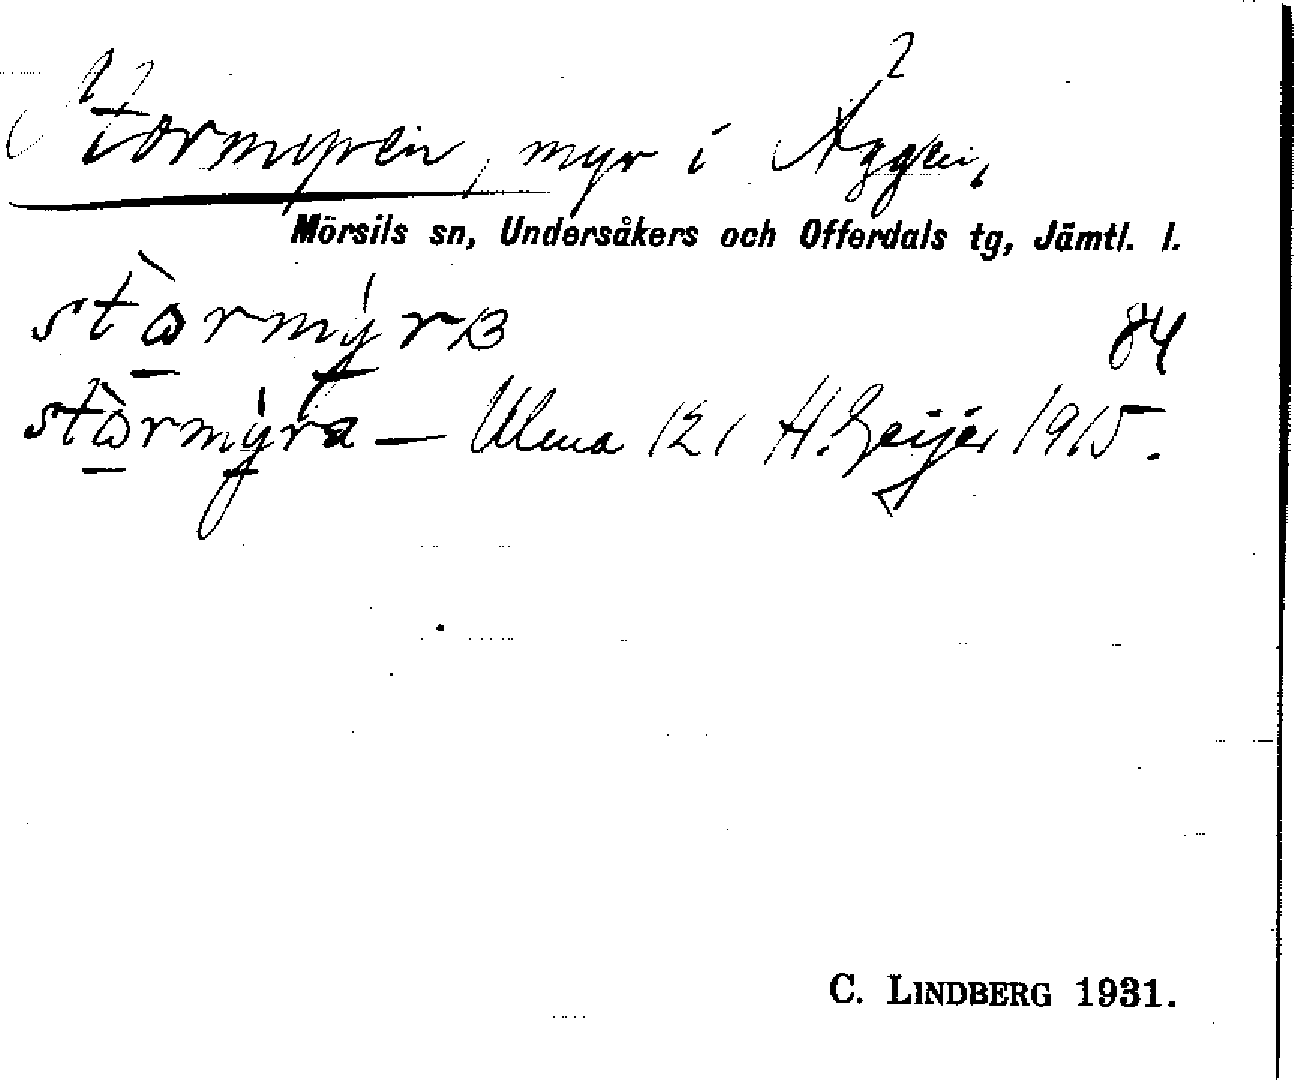 Stormyren, myr i Äggen,
Mörsils sn, Undersåkers och Offerdals tg, Jämtl. l.
84
stormyra — Ulma 121 H. Geijer 1915.
C. LINDBERG 1931.